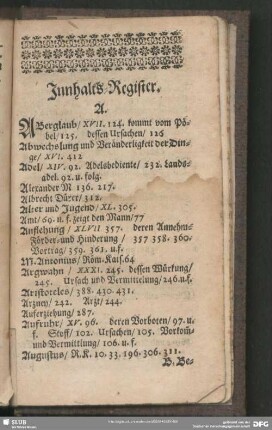 Innhalts Register.
A.
ABerglaub/ XVII. 124. kommt vom Pö-
bel/ 125. dessen Ursachen/ 126
Abwechslung und Veränderligkeit der Din-
ge/ XVI. 412
Adel/ XIV. 92. Adelsbediente/ 232. Lands-
adel. 92. u. folg.
Alexander M 136. 217.
Albrecht Dürer/ 312.
Alter und Jugend/ XL. 305.
Amt/ 69. u. f. zeigt den Mann/77
Auflehung/ XLVII 357. deren Annehm-
Förder- und Hinderung/ 357 358. 360.
Vortrag/ 359. 363. u.f.
M. Antonius/ Röm. Kais. 64
Argwahn/ XXXI. 245. dessen Würkung/
245. Ursach und Vermittelung/ 246. u.f.
Aristoteles/ 388. 430. 431.
Arzney/ 242. Arzt/ 244.
Auferziehung/ 287.
Aufruhr/ XV. 96. deren Vorboten/ 97. u.
f. Stoff/ 102. Ursachen/ 105. Vorkom̃
und Vermittlung/ 106. u. f.
Augustus/ R.K. 10. 33. 196. 306. 311.
B. Be-
SLUB